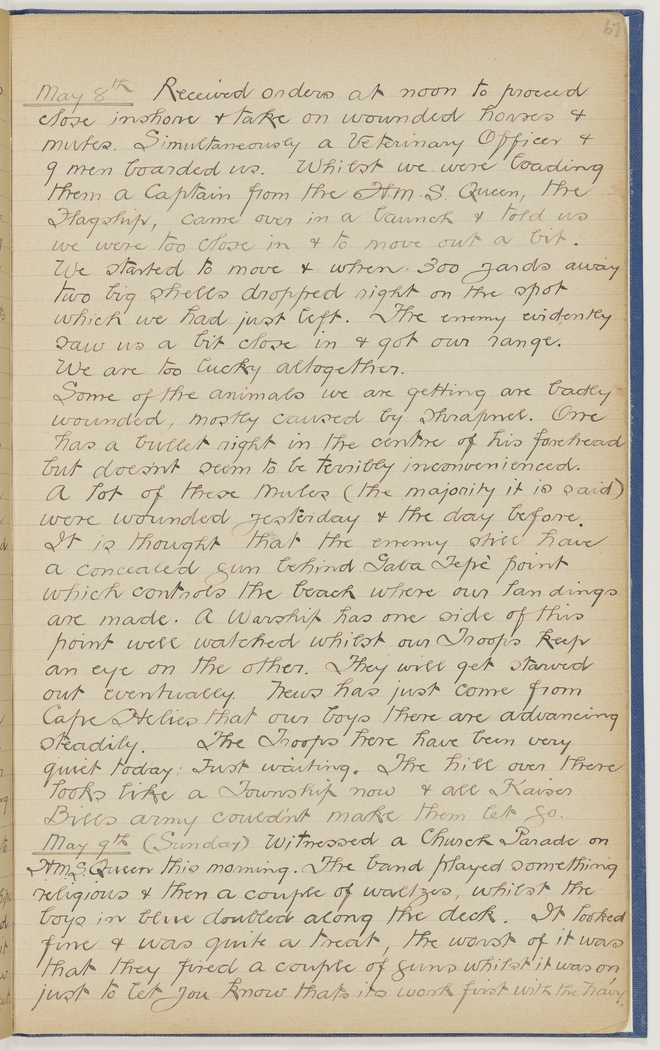 67
May 8th Received orders at noon to proceed
close inshore & take on wounded horses &
mules. Simultaneously a Veterinary Officer &
9 men boarded us. Whilst we were loading
them a Captain from the H.M.S. Queen, the
Flagship, came over in a launch & told us
we were too close in & to move out a bit.
We started to move & when 300 yards away
two big shells dropped right on the spot
which we had just left. The enemy evidently
saw us a bit close in & got our range.
We are too lucky altogether.
Some of the animals we are getting are badly
wounded, mostly caused by shrapnel. One
has a bullet right in the centre of his forehead
but doesn't seem to be terribly inconvenienced.
A lot of these mules (the majority it is said)
were wounded yesterday & the day before.
It is thought that the enemy still have
a concealed gun behind Gaba Tepè point
which controls the beach where our landings
are made. A Warship has one side of this
point well watched whilst our Troops keep
an eye on the other. They will get starved
out eventually. News has just come from
Cape Helies that our boys there are advancing
steadily. The Troops here have been very
quiet today: Just waiting. The hill over there
looks like a Township now & all Kaiser
Bills army couldn't make them let go.
May 9th (Sunday) Witnessed a Church Parade on
H.M.S. Queen this morning. The band played something
religious & then a couple of waltzes, whilst the
boys in blue doubled along the deck. It looked
fine & was quite a treat, the worst of it was
that they fired a couple of guns whilst it was on
just to let you know thats its work first with the Navy.